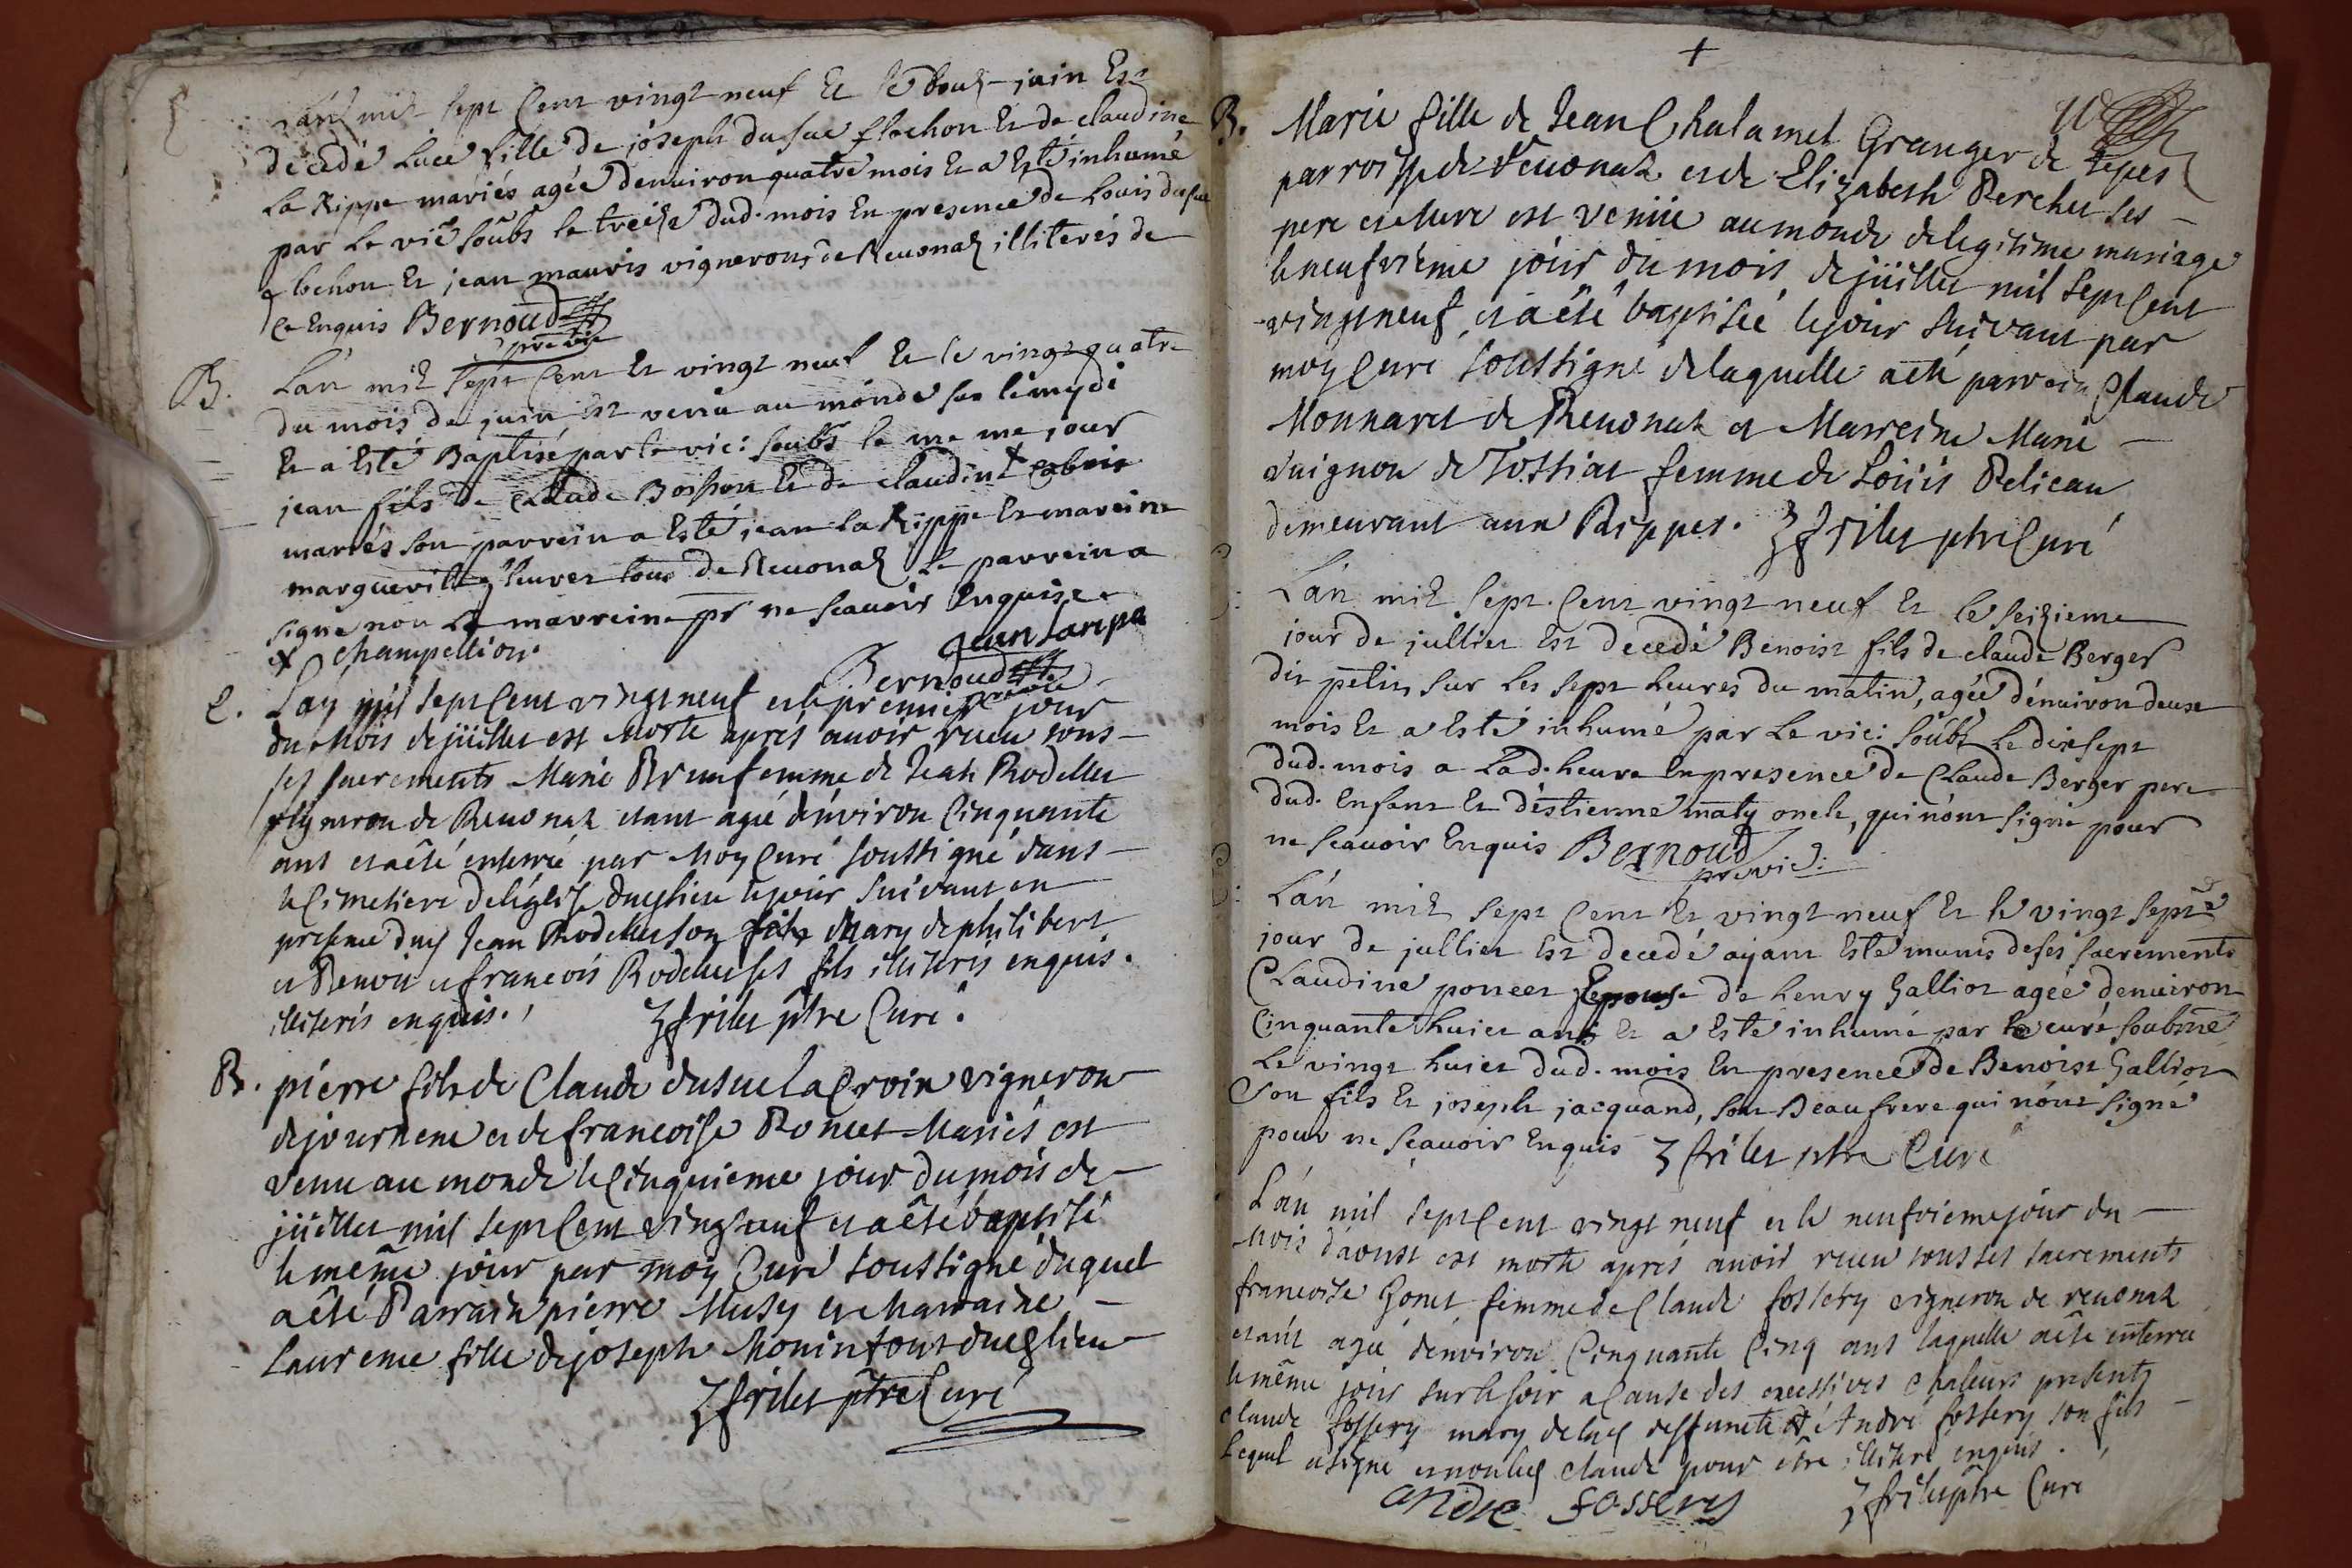 L'an mil sept Cent vingt neuf Et le douz juin Est
decedé Luce fille de joseph du suc flochon Et de claudine
La Rippe mariés agée denviron quatre mois Et a Esté inhumé
par Le vic soubs le treize dud. mois En presence de Louis du suc
flochon Et jean mauris vignerons de Revonaz illiterés de
Ce Enquis Bernoud
pre vic
B. L'an mil sept Cent Et vingt neuf Et le vingt quatre
du mois de juin Est venu au monde sur le mydi
Et a Esté Baptisé par le vic: soubs le me me jour
jean fils de Claude Boisson Et de claudine
mariés son parrein a Esté jean la Rippe Et mareine
marguerite tous de Revonaz Le parrein a
signe non La marreine pr ne scauoir Enquise.
x champellion. jean Laripe
Bernoud pre vic
E. L'an mil sept Cent vingt neuf et le premier jour
du Mois de jüillet est Morte aprés auoir receu tous
ses sacrements Marie Brun femme de Jean Rodellet
vigneron de Revonaz etant agée d'environ Cinquante
ans et a êté enterrée par Moy Curé soussigné dans
le Cimetiere de l'église dudt lieu le jour suivant en
presence dud Jean Rodellet son Mary de philibert
et Benoit et francois Rodellet ses fils illiteris enquis.
illiteris enquis. friler ptre Curé.
B. piérre fils de Claude dusuc la Croix vigneron
de journene et de francoise Roncet Mariés est
venu au monde le Cinquieme jour du mois de
jüillet mil sept Cent vingt neuf et a êté baptisé
le même jour par moy Curé soussigné duquel
a êté Parrain pierre Musy et Marraine
Laurence fille de joseph Monin tous dud lieu
friler ptre Curé
+
B. Marie fille de Jean Chalamel Granger de Repes
parroisse de Revonaz et de Elizabeth Perchet ses
pere et Mere est venüe au monde de legitime mariage
le neufviéme jour du mois de jüillet mil sept Cent
vingt neuf et a êté baptisée le jour suivant par
moy Curé soussigné de laquelle a êté parrain Claude
Monnaret de Revonaz et Marreine Marie
Juignon de Tossiat femme de Loüis Pelican
demeurant aux Rippes. friler ptre Curé
L'an mil sept Cent vingt neuf Et le seizieme
jour de jullier Est decedé Benoist fils de claude Berger
dit petin sur les sept heures du matin, agée d'enuiron deux
mois Et a Esté inhumé par Le vic: soubs Le dixsept
dud. mois a Lad. heure En presence de Claude Berger pere
dud. Enfant Et d'éstienne maty oncle, qui nont signé pour
ne scauoir Enquis Bernoud
pre vic:
L'an mil sept Cent Et vingt neuf Et le vingt sept
jour de jullier Est decedé ayant Esté munis de ses sacrements
Claudine poncet Epouse de henry Galliot agée denuiron
Cinquante huict ans Et a Esté inhumé par le curé soubné
Le vingt huict dud. mois En presence de Benoist Galliot
Son fils Et joseph jacquand, son Beaufrere qui nont signé
pour ne scauoir Enquis friler ptre Curé
L'an mil sept Cent vingt neuf et le neufvieme jour du
Mois d'aoust est morte aprés auoir receu tous ses sacrements
francoise Gonet femme de Claude fossery vigneron de revonaz
etant agée denviron Cinquante Cinq ans laquelle a êté enterrée
le même jour sur le soir a Cause des excessives Chaleurs presents
Claude fossery mary de lad deffuncte et André fossery son fils
Lequel a signé et non led claude pour être illitere enquis.
andre fosserys friler ptre Curé